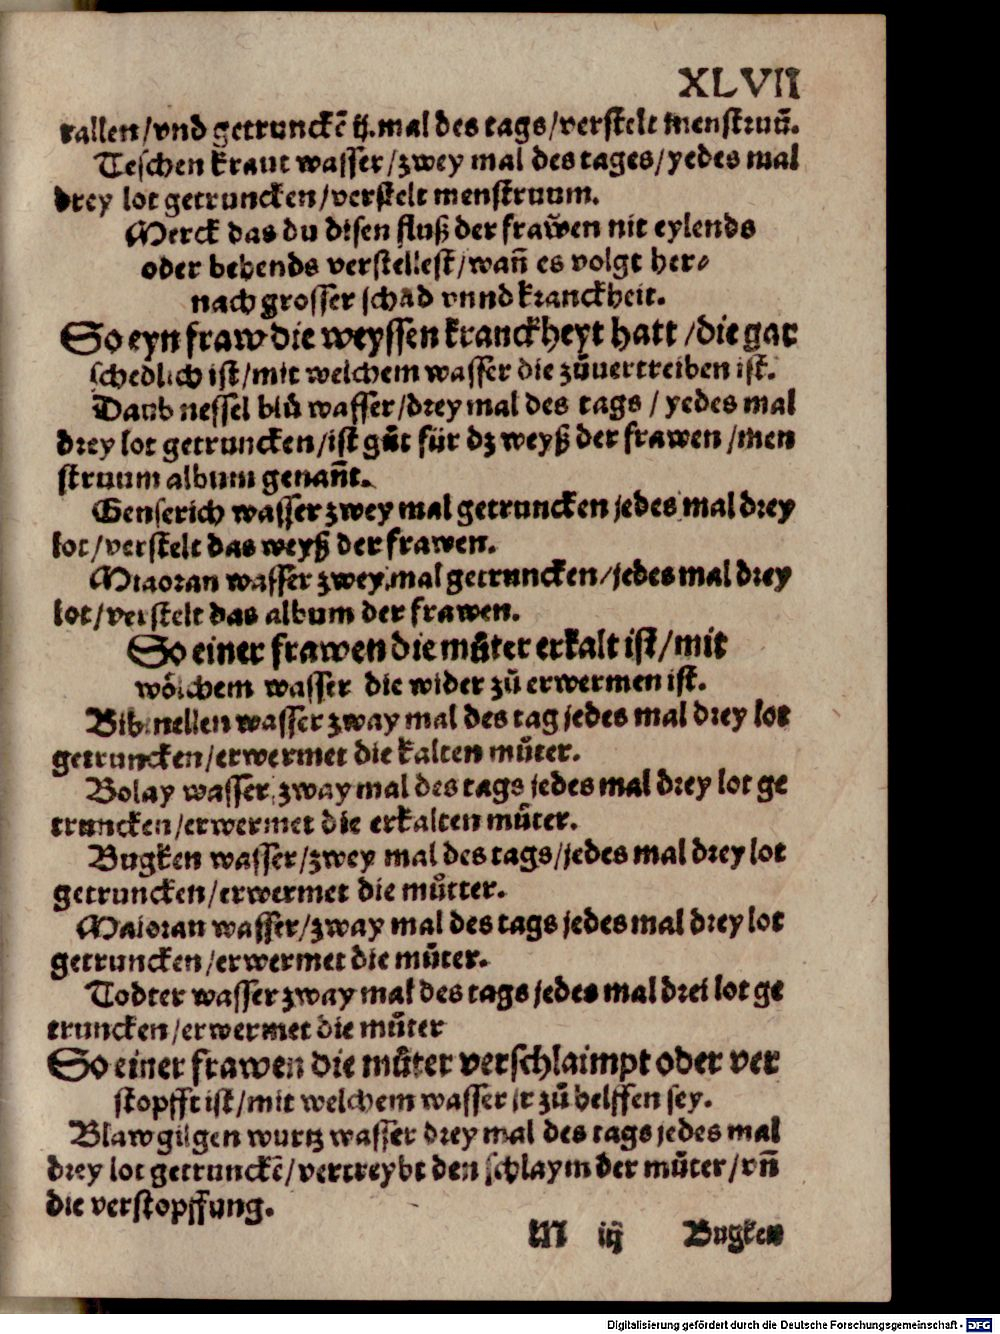 XLVII
rallen/vnd getrunckē ij.mal des tags/verstelt menstruū.
Teschen kraut wasser/zwey mal des tages/yedes mal
drey lot getruncken/verstelt menstruum.
Merck das du disen fluß der frawen nit eylends
oder behends verstellest/wañ es volgt her⸗
nach grosser schad vnnd kranckheit.
So eyn fraw die weyssen kranckheyt hatt/die gar
schedlich ist/mit welchem wasser die zůuertreiben ist.
Daub nessel blů wasser/drey mal des tags/yedes mal
drey lot getruncken/ist gůt für dz weyß der frawen/men
struum album genañt.
Genserich wasser zwey mal getruncken jedes mal drey
lot/verstelt das weyß der frawen.
Miaoran wasser zwey mal getruncken/jedes mal drey
lot/verstelt das album der frawen.
So einer frawen die můter erkalt ist/mit
wölchem wasser die wider zů erwermen ist.
Bibinellen wasser zway mal des tag jedes mal drey lot
getruncken/erwermet die kalten můter.
Bolay wasser zway mal des tags jedes mal drey lot ge
truncken/erwermet die erkalten můter.
Bugken wasser/zwey mal des tags/jedes mal drey lot
getruncken/erwermet die můtter.
Maioran wasser/zway mal des tags jedes mal drey lot
getruncken/erwermet die můter.
Todter wasser zway mal des tags jedes mal drei lot ge
truncken/erwermet die můter
So einer frawen die můter verschlaimpt oder ver
stopfft ist/mit welchem wasser ir zů helffen sey.
Blaw gilgen wurtz wasser drey mal des tags jedes mal
drey lot getrunckē/vertreybt den schlaym der můter/vñ
die verstopffung.
M iij Bugken
Digitalisierung gefördert durch die Deutsche Forschungsgemeinschaft - DFG